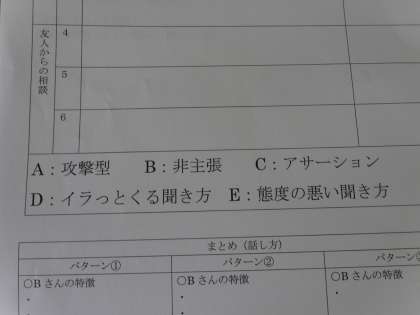 友人からの相談
4
5
6
A：攻撃型　B：非主張　C：アサーション
D：イラっとくる聞き方　E：態度の悪い聞き方
まとめ（話し方）
パターン①　パターン②
〇Bさんの特徴　〇Bさんの特徴　〇Bさんの特徴
・　・　・
・　・　・